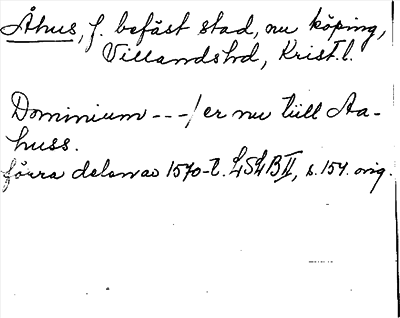 Åhus, f. befäst stad, nu köping,
Villandshd, Krist.l.
Dominium ---/ er nu till Aa-
huss.
förra delen av 1570-t. LSLB II, s. 154. orig.